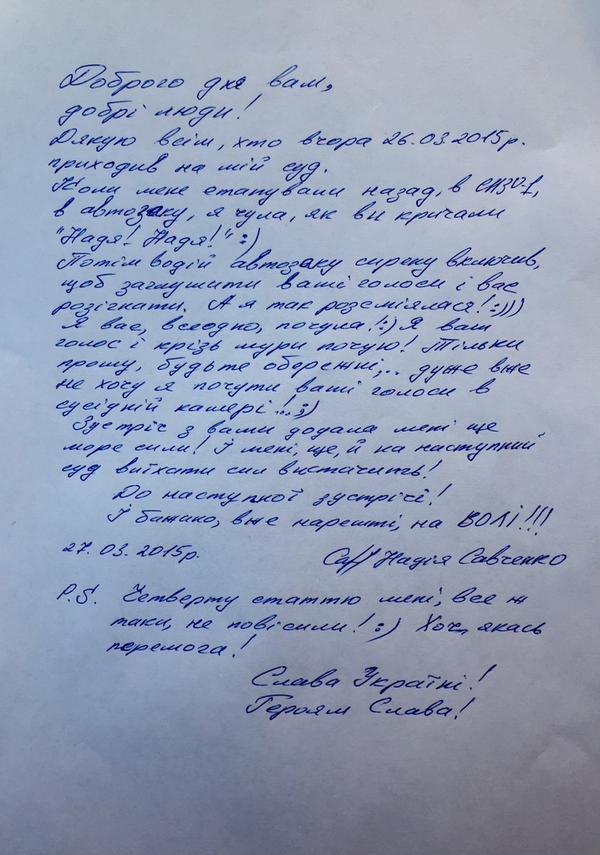 Доброго дня вам,
добрі люди!
Дякую всім, хто вчора 26.03.2015р.
приходив на мій суд.
Коли мене етапували назад, в СИЗО-1,
в автозаку, я чула, як ви кричали
"Надя! Надя!" :)
Потім водій автозаку сирену включив,
щоб заглушити ваші голоси і вас
розігнати. А я так розсміялася! :)))
Я вас, всеодно, почула! :) Я ваш
голос і крізь мури почую! Тільки
прошу, будьте обережні,.. дуже вже
не хочу я почути ваші голоси в
сусідній камері!..:)
Зустріч з вами додала мені ще
море сили! І мені, ще, й на наступний
суд виїхати сил вистачить!
До наступної зустрічі!
І бажано, вже нарешті, на ВОЛІ!!!
27.03.2015р. Надія Савченко
P.S. Четверту статтю мені, все ж
таки, не повісили! :) Хоч, якась
перемога!
Слава Україні!
Героям Слава!